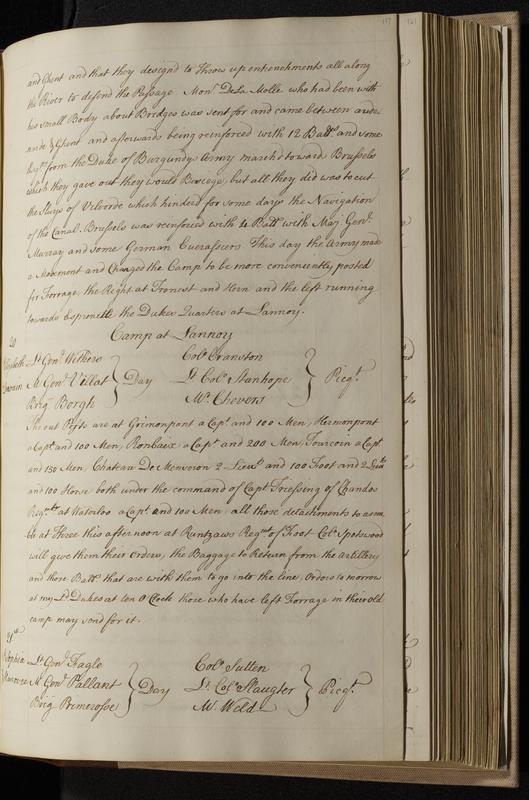 117 121
and Ghent and that they designd to Throw up entrenchments all along
the River to defend the Passage. Monr. De La Motte who had been with
his small Body about Bridges was sent for and came between
Ghent and afterwards being reinforced with 12 Batt. and some
from the Duke of Burgundys Army marchd towards Brussels
which they gave out they would Besiege, but all they did was to cut
the Sluys of Vilvorde which hinderd for some days the Navigation
of the Canal. Brussels was reinforced with 4 Batt. with Maj: Genl.
Murray and some German Cuerassiers This day the Army made
a Movement and Changed the Camp to be more conveniently posted
for Forrage, the Right at Tronest and Hern and the left running
towards the Dukes Quarters at Lannoy.
Camp at Lannoy
20
Lt. Genl. Withers
M. Genl. Villat
Brig Borgh
Day
Colo. Cranston
Lt. Colo. Stanhope
Mr. Chevers
Picqt.
The out Posts are at Grimonpont a Capt. and 100 Men, Hermonpont
a Capt. and 100 Men, Ronbaix a Capt. and 200 Men, Tourcoin a Capt.
and 150 Men, Chateau De 2 Lieuts. and 100 Foot and 2 Lieuts
and 100 Horse both under the command of Capt. Triessing of Chandos
Regmt. at Waterloo a Capt. and 100 Men, all those detachments to
at Three this afternoon at Runtzaws Regmt. of Foot Colo. Spotswood
will give them their Orders, the Baggage to Return from the Artillery
and those Batts. that are with them to go into the line, Orders to morrow
at my Ld. Dukes at ten O'Clock those who have left Forrage in their old
camp may send for it.
21st
Sophia
Lt. Genl. Fagle
M. Genl. Pallant
Brig Primerose
Day
Colo. Sutten
Lt. Colo. Slaugter
Mr. Wild
Picqt.